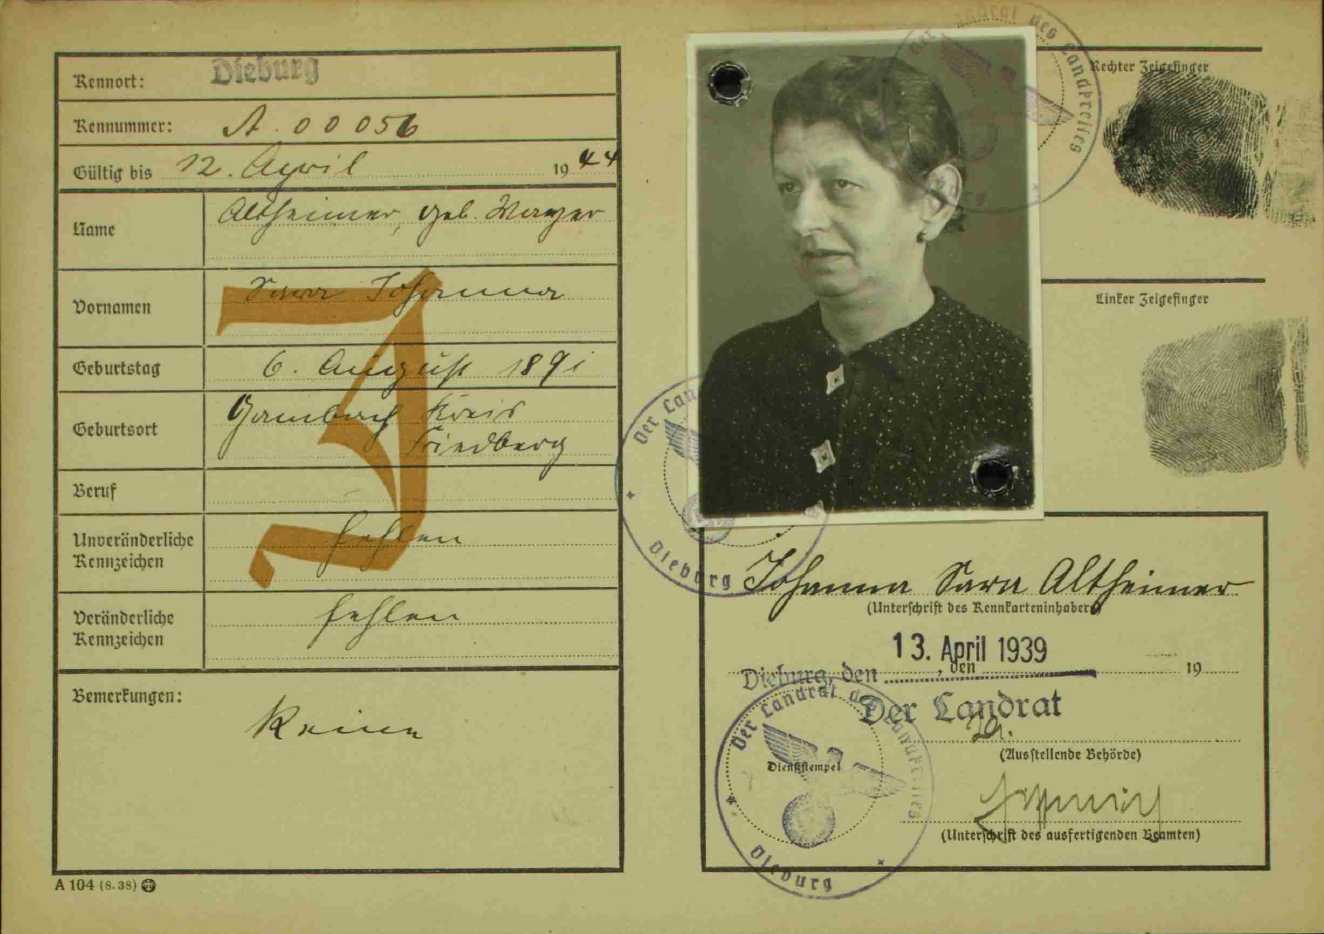 Kennort: Dieburg
Kennummer: A. 00056
Gültig bis 12. April 1944
Name Altheimer, geb. Mayer
Vornamen Sara Johanna
Geburtstag 6. August 1891
Geburtsort Gambach Kreis
Friedberg
Beruf
Unveränderliche
Kennzeichen fehlen
Veränderliche
Kennzeichen fehlen
Bemerkungen:
Keine
J
A 104 (8. 38)
Rechter Zeigefinger
Linker Zeigefinger
Der Landrat des Landkreises
Dieburg
Johanna Sara Altheimer
(Unterschrift des Kennkarteninhabers)
13. April 1939
Dieburg, den , den 19
Der Landrat
(Ausstellende Behörde)
Dienststempel
Der Landrat des Landkreises
Dieburg
(Unterschrift des ausfertigenden Beamten)